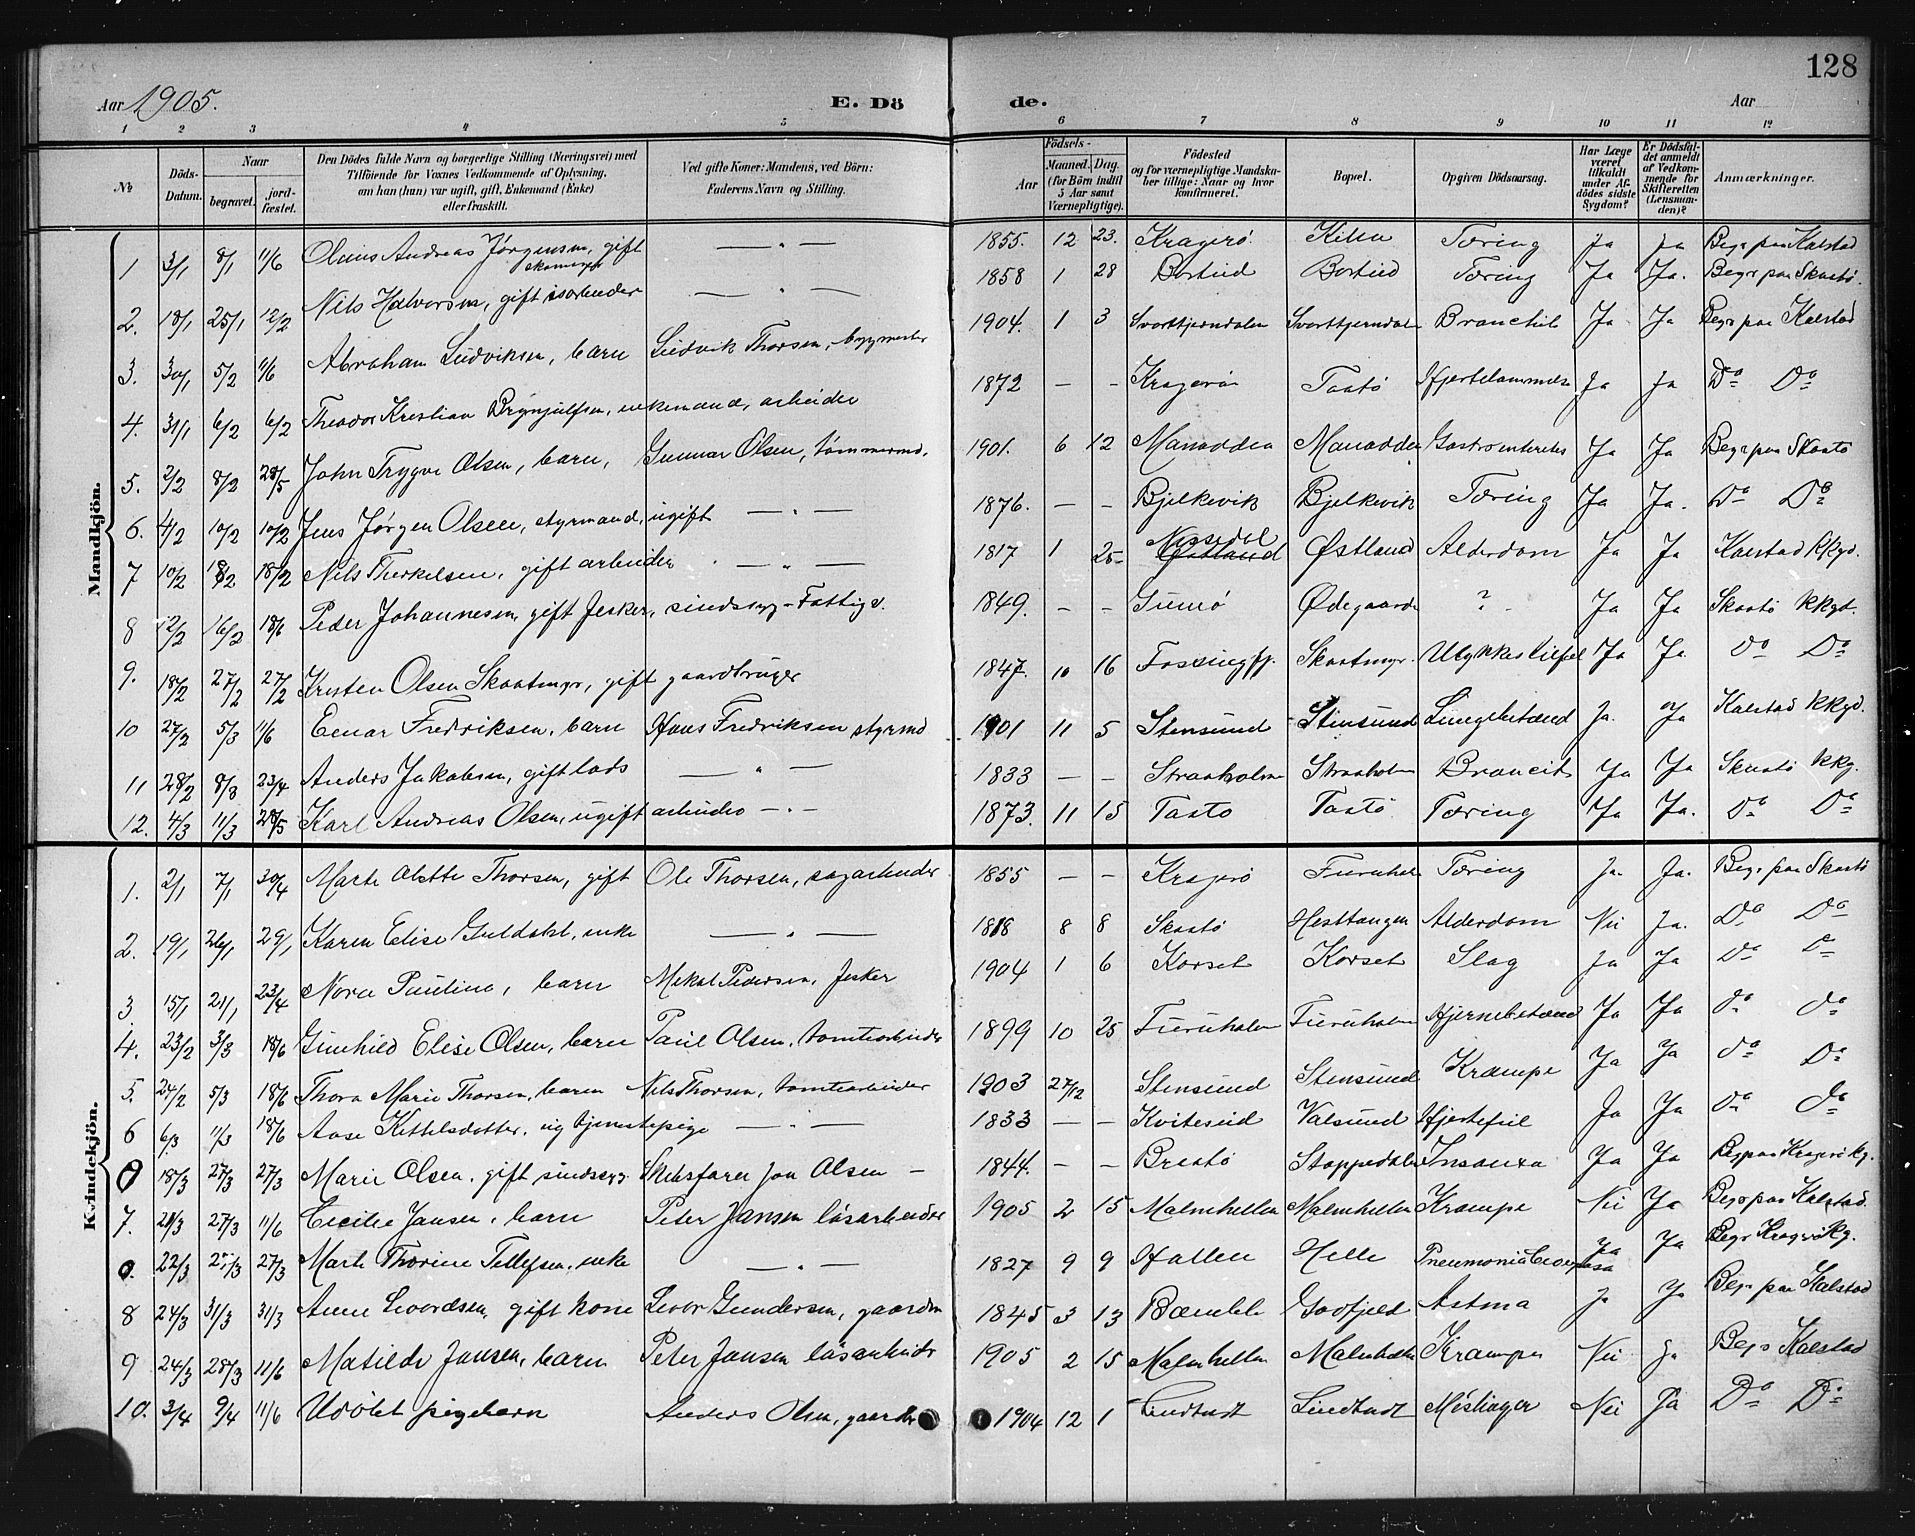 128
Aar 1905. E. Dö de. Aar
1 2 3 4 5 6 7 8 9 10 11 12
№ Döds-Datum. Naar begravet. jordfæstet. Den Dödes fulde Navn og borgerlige Stilling (Næringsvei) med Tilföiende for Voxnes Vedkommende af Oplysning, om han (hun) var ugift, gift, Enkemand (Enke) eller fraskilt. Ved gifte Koner: Mandens, ved Börn: Faderens Navn og Stilling. Födsels- Aar Maaned. Dag. (for Börn indtil 5 Aar samt Værnepligtige). Födested og for værnepligtige Mandskaber tillige: Naar og hvor konfirmeret. Bopæl. Opgiven Dödsaarsag. Har Læge været tilkaldt under Afdödes sidste Sygdom? Er Dödsfaldet anmeldt af Vedkommende for Skifteretten (Lensmanden)? Anmærkninger.
Mandkjön.
1 3/1 8/1 11/6 Olaus Andreas Jørgensen, gift — " — 1855. 12 23. Kragerö Kilen Tæring Ja Ja Begr paa Kalstad
2. 18/1 25/1 12/2 Nils Halvorsen, gift isarbeider — " — 1858 1 28 Tæring Ja Ja. Begr paa Skaatö
3. 30/1 5/2 11/6 Abraham Ludviksen, barn Ludvik Thorsen, bygmester 1904. 1 3 Svarttjerndalen Svarttjerndalen Ja Ja Begr paa Kalstad
4. 31/1 6/2 6/2 Theodor Kristian Brynjulfsen, enkemand, arbeider 1872 — — Kragerö Taatö Hjertelammelse Ja Ja Do Do
5. 2/2 8/2 28/5 John Trygve Olsen, barn, Gunnar Olsen, tømmermd. 1901. 6 12 Manodden Manodden Ja Ja Begr paa Skaatö
6. 4/2 10/2 10/2 Jens Jørgen Olsen, styrmand, ugift — " — 1876. — — Bjelkevik Bjelkevik Tæring Ja Ja. Do Do
7 10/2 18/2 18/2 Nils Therkelsen, gift arbeider — " — 1817 1 25 Nissedal Østland Alderdom Ja Ja Kalstad kkgd.
8 12/2 16/2 18/6 Peder Johannesen, gift fisker, sindssyg – Fattigv. 1849. — — Gumö Ødegaarden ? Ja Ja Skaatö kkgd.
9. 18/2 27/2 27/2 Kristen Olsen Skaatmyr, gift gaardbruger 1847. 10 16 Fossingfj. Skaatmyr. Ulykkestilfel Ja Ja Do Do
10 27/2 5/3 11/6 Einar Fredriksen, barn Hans Fredriksen styrmd 1901 11 5 Stensund Stensund Lungebetænd Ja. Ja Kalstad kkgd.
11 28/2 8/3 23/4 Anders Jakobsen, gift lods — " — 1833 — — Straaholm Straaholm Ja Ja Skaatö kkg.
12. 4/3 11/3 28/5 Karl Andreas Olsen, ugift arbeider — " — 1873. 11 15 Taatö Taatö Tæring Ja Ja. Do Do
Kvindekjön.
1. 2/1 7/1 30/4 Marte Thorsen, gift Ole Thorsen, sagarbeider 1855 — — Kragerö Furuholm Tæring Ja. Ja. Begr paa Skaatö
2. 19/1 26/1 29/1 Karen Elise Guldahl, enke — " — 1818 8 8 Skaatö Hesttangen Alderdom Nei Ja. Do Do
3 15/1 21/1 23/4 Nora Pauline, barn Mikal Pedersen, fisker 1904 1 6 Korset Korset Slag Ja Ja Do Do
4. 23/2 3/3 18/6 Gunhild Elise Olsen, barn Paul Olsen, tomtearbeider 1899 10 25 Furuholm Furuholm Hjernebetænd Ja Ja Do Do
5. 24/2 5/3 18/6 Thora Marie Thorsen, barn Nils Thorsen, tomtearbeider 1903 27/12 Stensund Stensund Krampe Ja Ja Do Do
6 6/3 11/3 18/6 Aase Kittelsdotter, ug tjenestepige — " — 1833 — — Kviteseid Valsund Hjertefeil Ja Ja Do Do
0 18/3 27/3 27/3 Marie Olsen, gift sindssyg Skibsfører Jon Olsen – 1844. — — Stoppedalen Insania Ja Ja Beg paa Kragerökg.
7. 21/3 27/3 11/6 Cecilie Jansen, barn Peter Jansen løsarbeider 1905 2 15 Malmhellen Malmhellen Krampe Nei Ja Begr paa Kalstad.
0. 22/3 27/3 27/3 Marte Thorine Tellefsen, enke — " — 1827 9 9 Helle Pneumonia Crouposa Ja Ja Begr Kragerökg.
8 24/3 31/3 31/3 Anne Livordsen, gift kone Livor Gundersen, gaardm 1845 3 13 Bamble Astma Ja Ja Begr paa Kalstad
9 24/3 28/3 11/6 Matilde Jansen, barn Peter Jansen løsarbeider 1905 2 15 Malmhellen Malmhellen Krampe Nei Ja Begr Kalstad
10. 3/4 9/4 11/6 Udöbt pigebarn Anders Olsen, gaardbr 1904 12 1 Lindtudt Lindtudt Meslinger Nei Ja Do Do